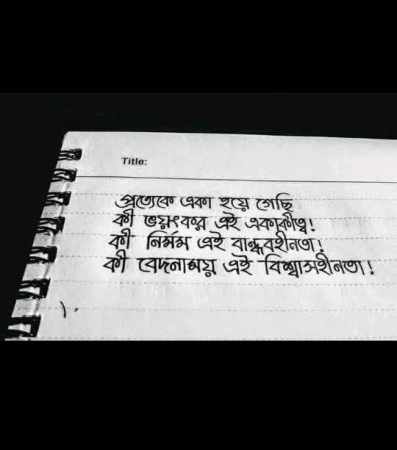 Title:
প্রত্যেকে একা হয়ে গেছি
কী ভয়ংকর এই একাকীত্ব!
কী নির্মম এই বান্ধবহীনতা!
কী বেদনাময় এই বিশ্বাসহীনতা!